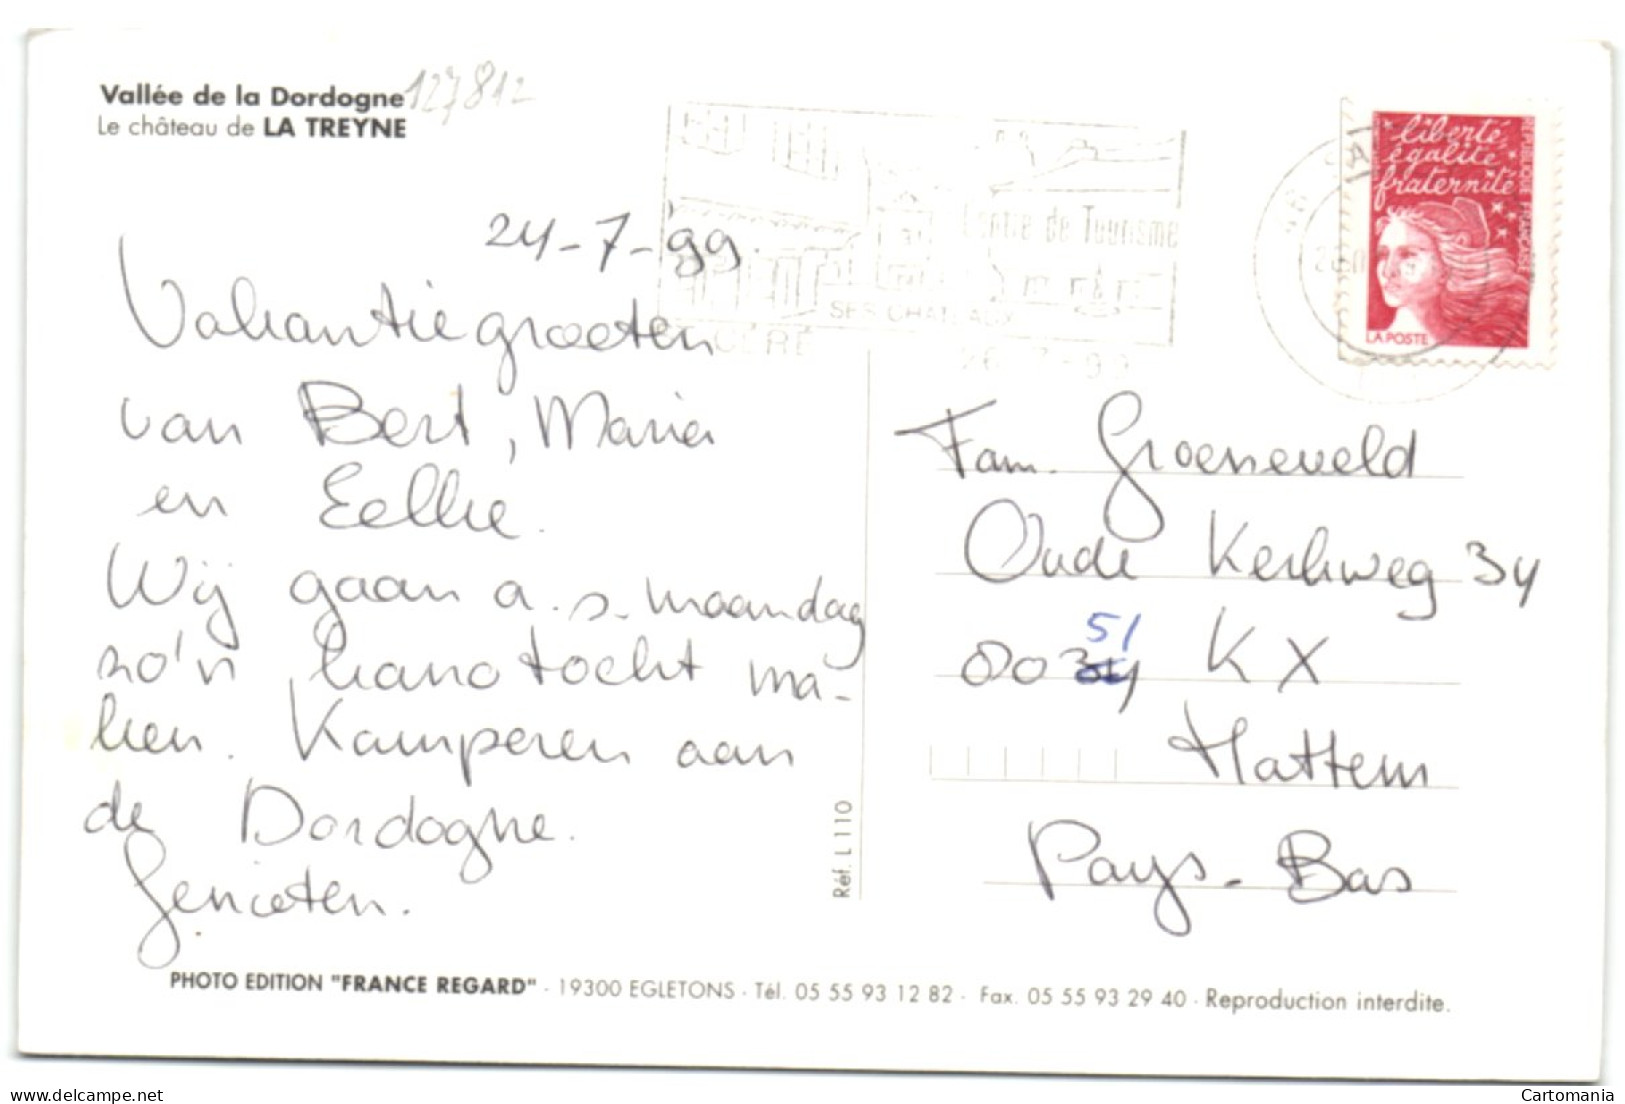 Vallée de la Dordogne
Le château de LA TREYNE
127812
24-7-99.
Vakantiegroeten
van Bert, Maria
en Eelke.
Wij gaan a.s. maandag
zo'n kanotocht ma-
ken. Kamperen aan
de Dordogne.
Genieten.
Centre de Tourisme
SES CHATEAUX
26-7-99
liberté
égalité
fraternité
REPUBLIQUE FRANÇAISE
LA POSTE
Fam. Groeneveld
Oude Kerkweg 34
51
8034 KX
Hattem
Pays-Bas
Réf. L 110
PHOTO EDITION "FRANCE REGARD" - 19300 EGLETONS - Tél. 05 55 93 12 82 - Fax. 05 55 93 29 40 - Reproduction interdite.
Cartomania